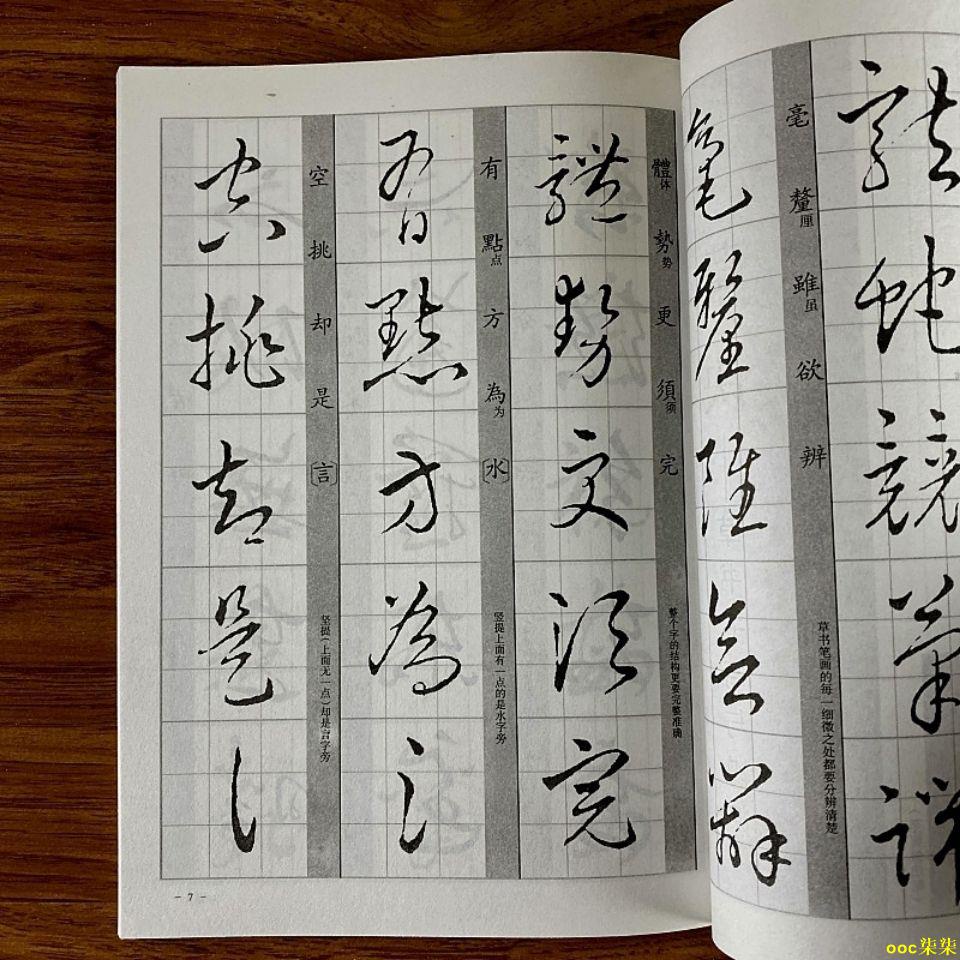 毫釐厘雖虽欲辨
草书笔画的每一细微之处都要分辨清楚
毫釐雖欲辨
體体勢势更須须完
整个字的结构更要完整准确
體勢更須完
有點点方為为〔水〕
竖提上面有一点的是水字旁
有點方為
空挑却是〔言〕
竖提(上面无一点)却是言字旁
空挑却是
- 7 -
ooc柒柒